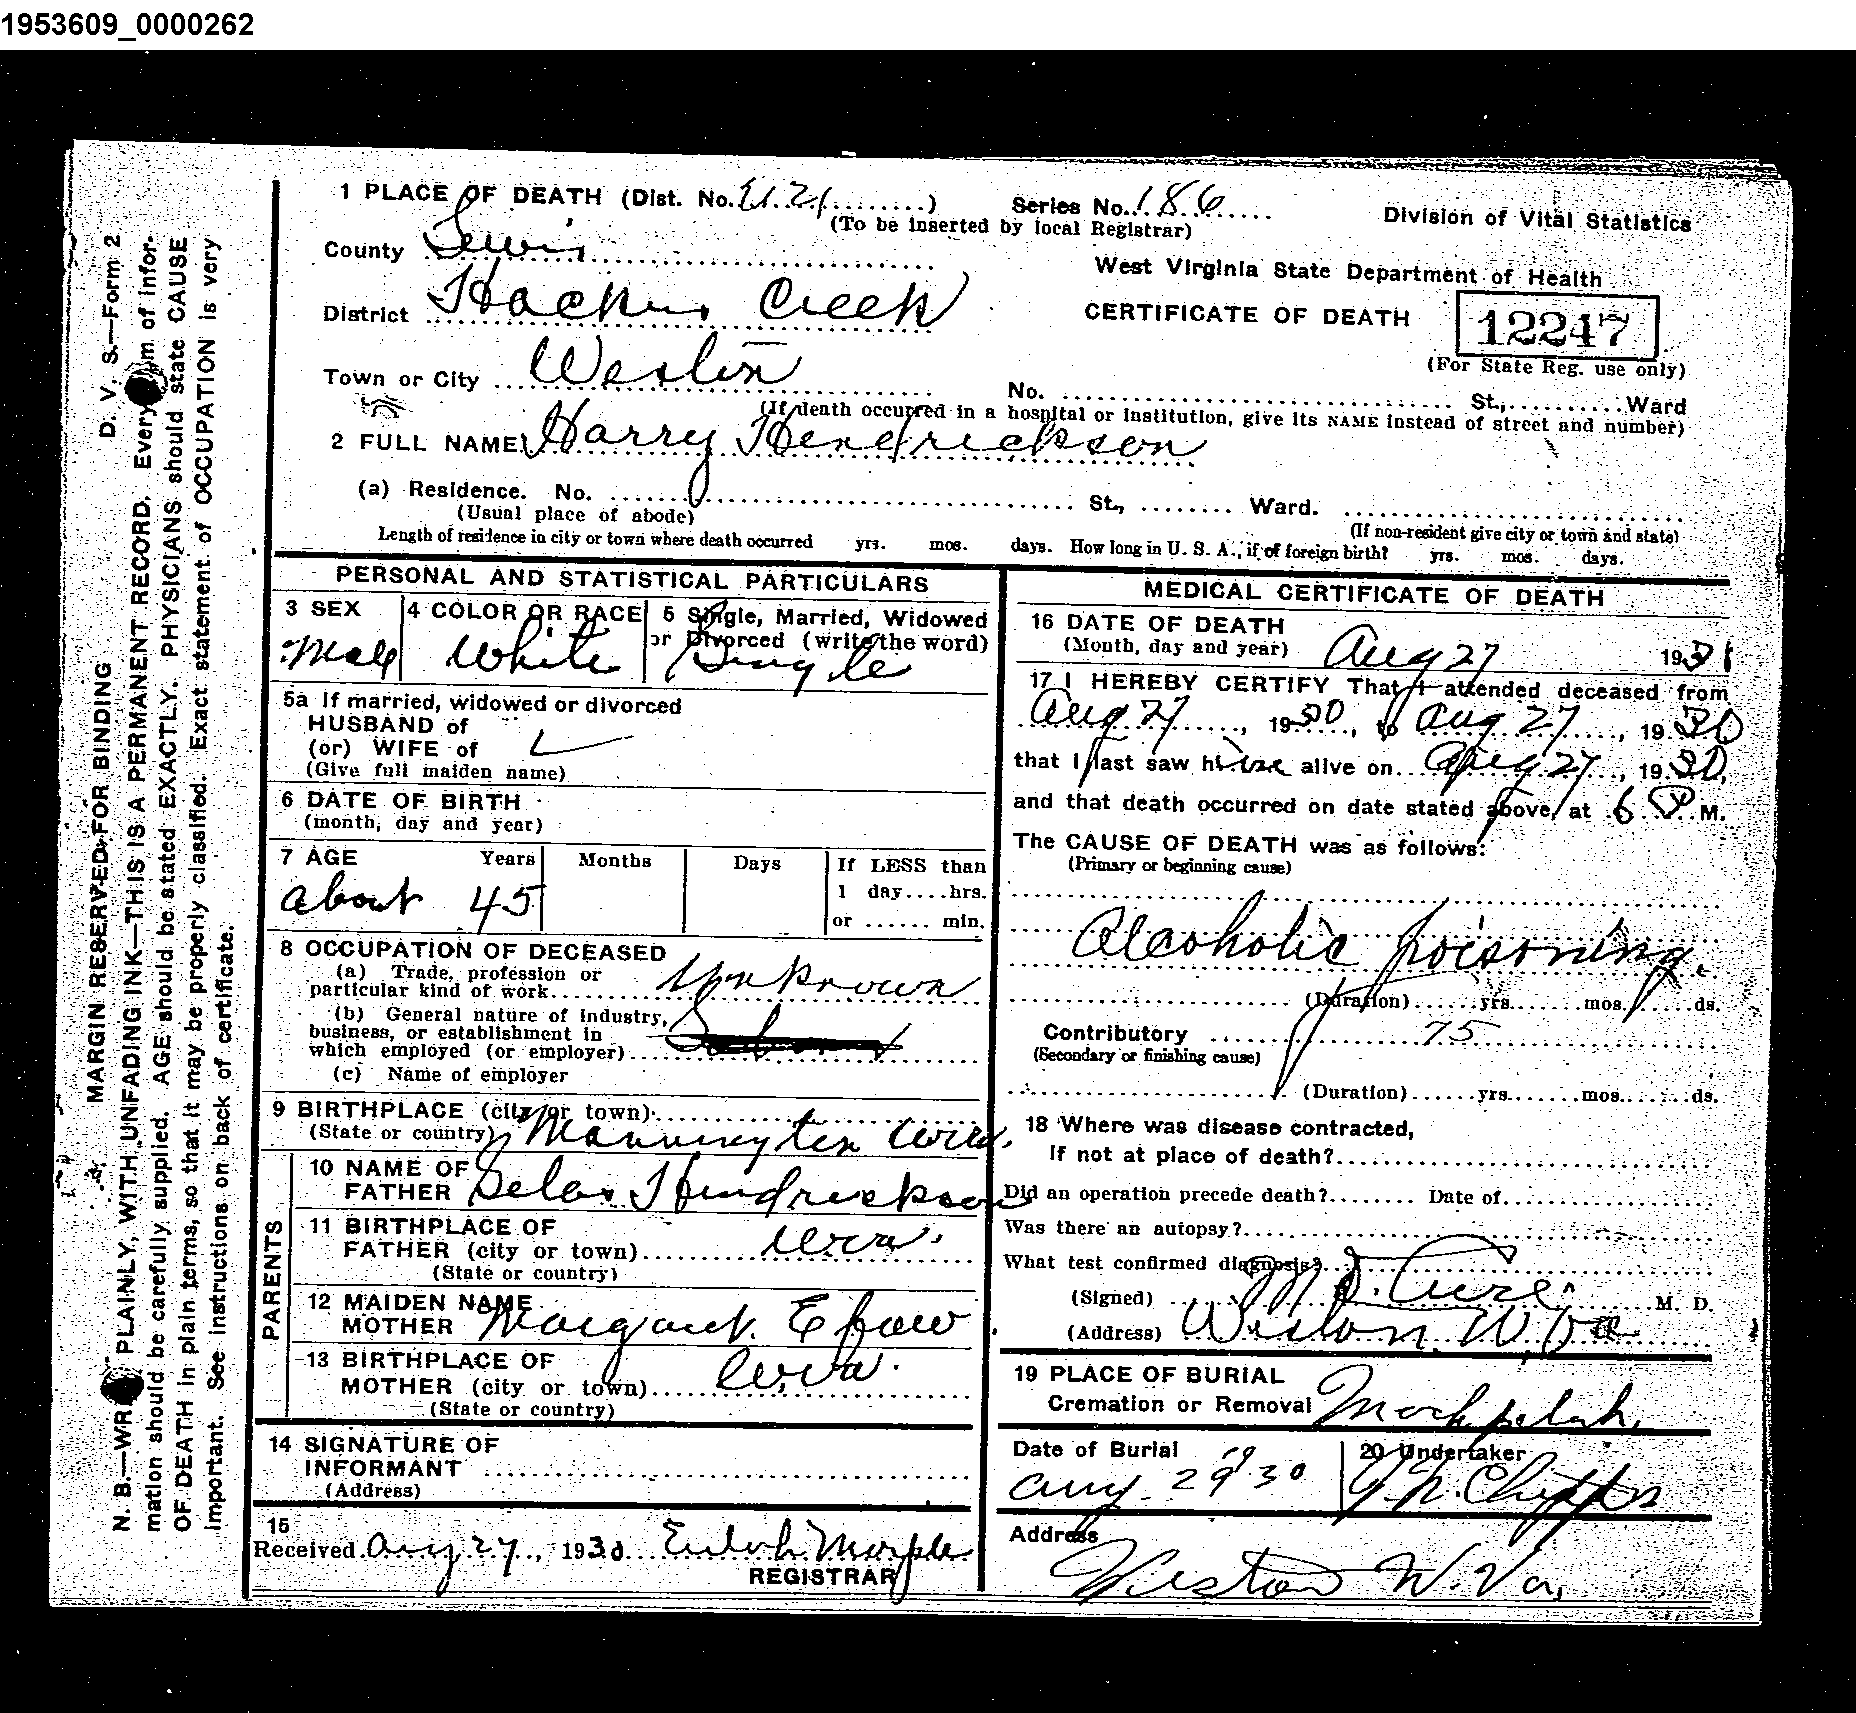 1953609_0000262
1 PLACE OF DEATH (Dist. No. 2121) Series No. 186
(To be inserted by local Registrar)
Division of Vital Statistics
County Lewis
West Virginia State Department of Health
District Hackers Creek
CERTIFICATE OF DEATH 12247
(For State Reg. use only)
Town or City Weston
No. St., Ward
(If death occurred in a hospital or institution, give its NAME instead of street and number)
2 FULL NAME Harry Hendrickson
(a) Residence. No. St., Ward.
(Usual place of abode) (If non-resident give city or town and state)
Length of residence in city or town where death occurred yrs. mos. days. How long in U. S. A., if of foreign birth? yrs. mos. days.
PERSONAL AND STATISTICAL PARTICULARS
3 SEX 4 COLOR OR RACE 5 Single, Married, Widowed
or Divorced (write the word)
Male White Single
5a If married, widowed or divorced
HUSBAND of
(or) WIFE of
(Give full maiden name)
6 DATE OF BIRTH
(month, day and year)
7 AGE Years Months Days If LESS than
1 day....hrs.
about 45
or ...... min.
8 OCCUPATION OF DECEASED
(a) Trade, profession or
particular kind of work Unknown
(b) General nature of industry,
business, or establishment in
which employed (or employer)
(c) Name of employer
9 BIRTHPLACE (city or town)
(State or country) Mannington W Va.
PARENTS
10 NAME OF
FATHER Hendrickson
11 BIRTHPLACE OF
FATHER (city or town) W Va.
(State or country)
12 MAIDEN NAME
MOTHER Margaret Efaw
13 BIRTHPLACE OF
MOTHER (city or town) W Va.
(State or country)
14 SIGNATURE OF
INFORMANT
(Address)
15
Received Aug 27, 1930 Marple
REGISTRAR
MEDICAL CERTIFICATE OF DEATH
16 DATE OF DEATH
(Month, day and year) Aug 27 193
17 I HEREBY CERTIFY That I attended deceased from
Aug 27, 1930, to Aug 27, 1930
that I last saw him alive on Aug 27, 1930,
and that death occurred on date stated above, at 6 P M.
The CAUSE OF DEATH was as follows:
(Primary or beginning cause)
Alcoholic poisoning.
(Duration) yrs. mos. ds.
Contributory 75
(Secondary or finishing cause)
(Duration) yrs. mos. ds.
18 Where was disease contracted,
If not at place of death?
Did an operation precede death? Date of
Was there an autopsy?
What test confirmed diagnosis?
(Signed) M. D.
(Address) Weston, W. Va
19 PLACE OF BURIAL
Cremation or Removal Machpelah
Date of Burial 20 Undertaker
Aug 29 1930
Address
Weston W. Va.
D. V. S.—Form 2
MARGIN RESERVED FOR BINDING
N. B.—WRITE PLAINLY, WITH UNFADING INK—THIS IS A PERMANENT RECORD. Every item of infor-
mation should be carefully supplied. AGE should be stated EXACTLY. PHYSICIANS should state CAUSE
OF DEATH in plain terms, so that it may be properly classified. Exact statement of OCCUPATION is very
important. See instructions on back of certificate.